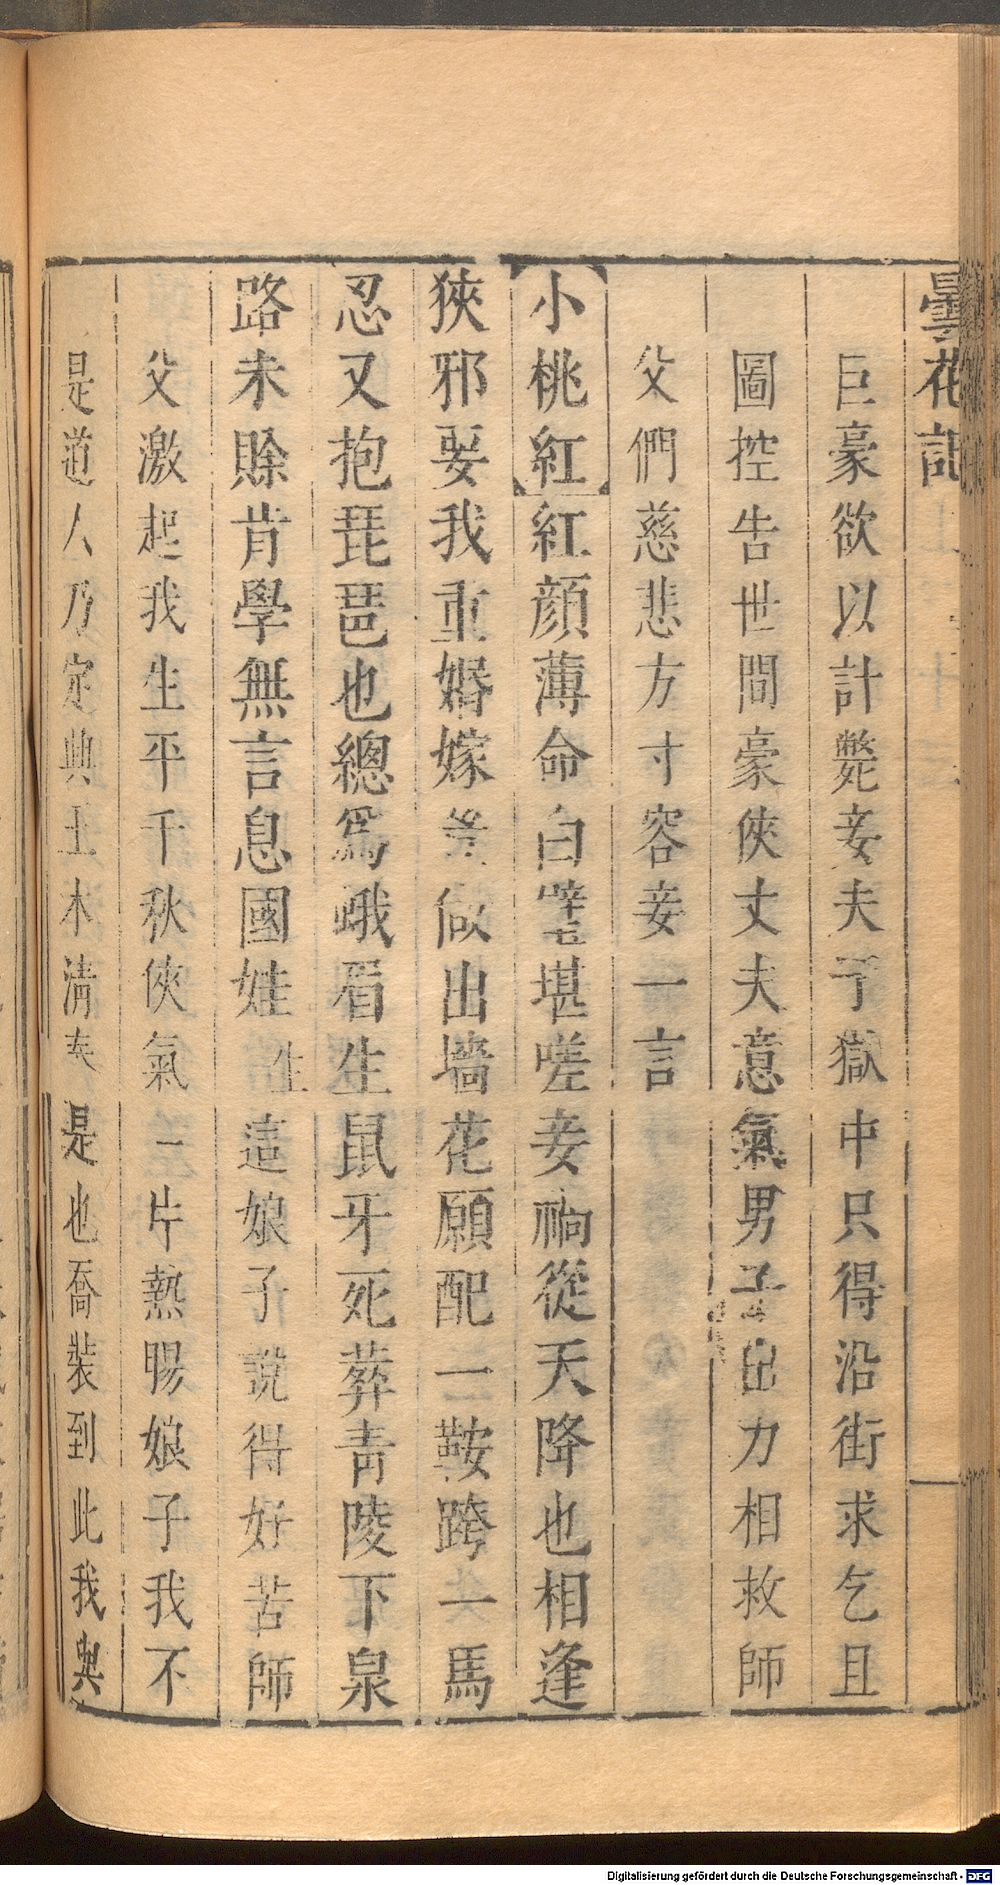 曇花記
巨豪欲以計斃妾夫于獄中只得沿街求乞且
圖控告世間豪俠丈夫意氣男子出力相救師
父們慈悲方寸容妾一言
小桃紅紅顏薄命白璧堪嗟妾禍從天降也相逢
狹邪要我重婚嫁羞做出墻花願配一鞍跨一馬
忍又抱琵琶也總爲峨眉生鼠牙死葬青陵下泉
路未賖肯學無言息國娃生這娘子說得好苦師
父激起我生平千秋俠氣一片熱腸娘子我不
是道人乃定興王木清泰是也喬裝到此我與
Digitalisierung gefördert durch die Deutsche Forschungsgemeinschaft - DFG